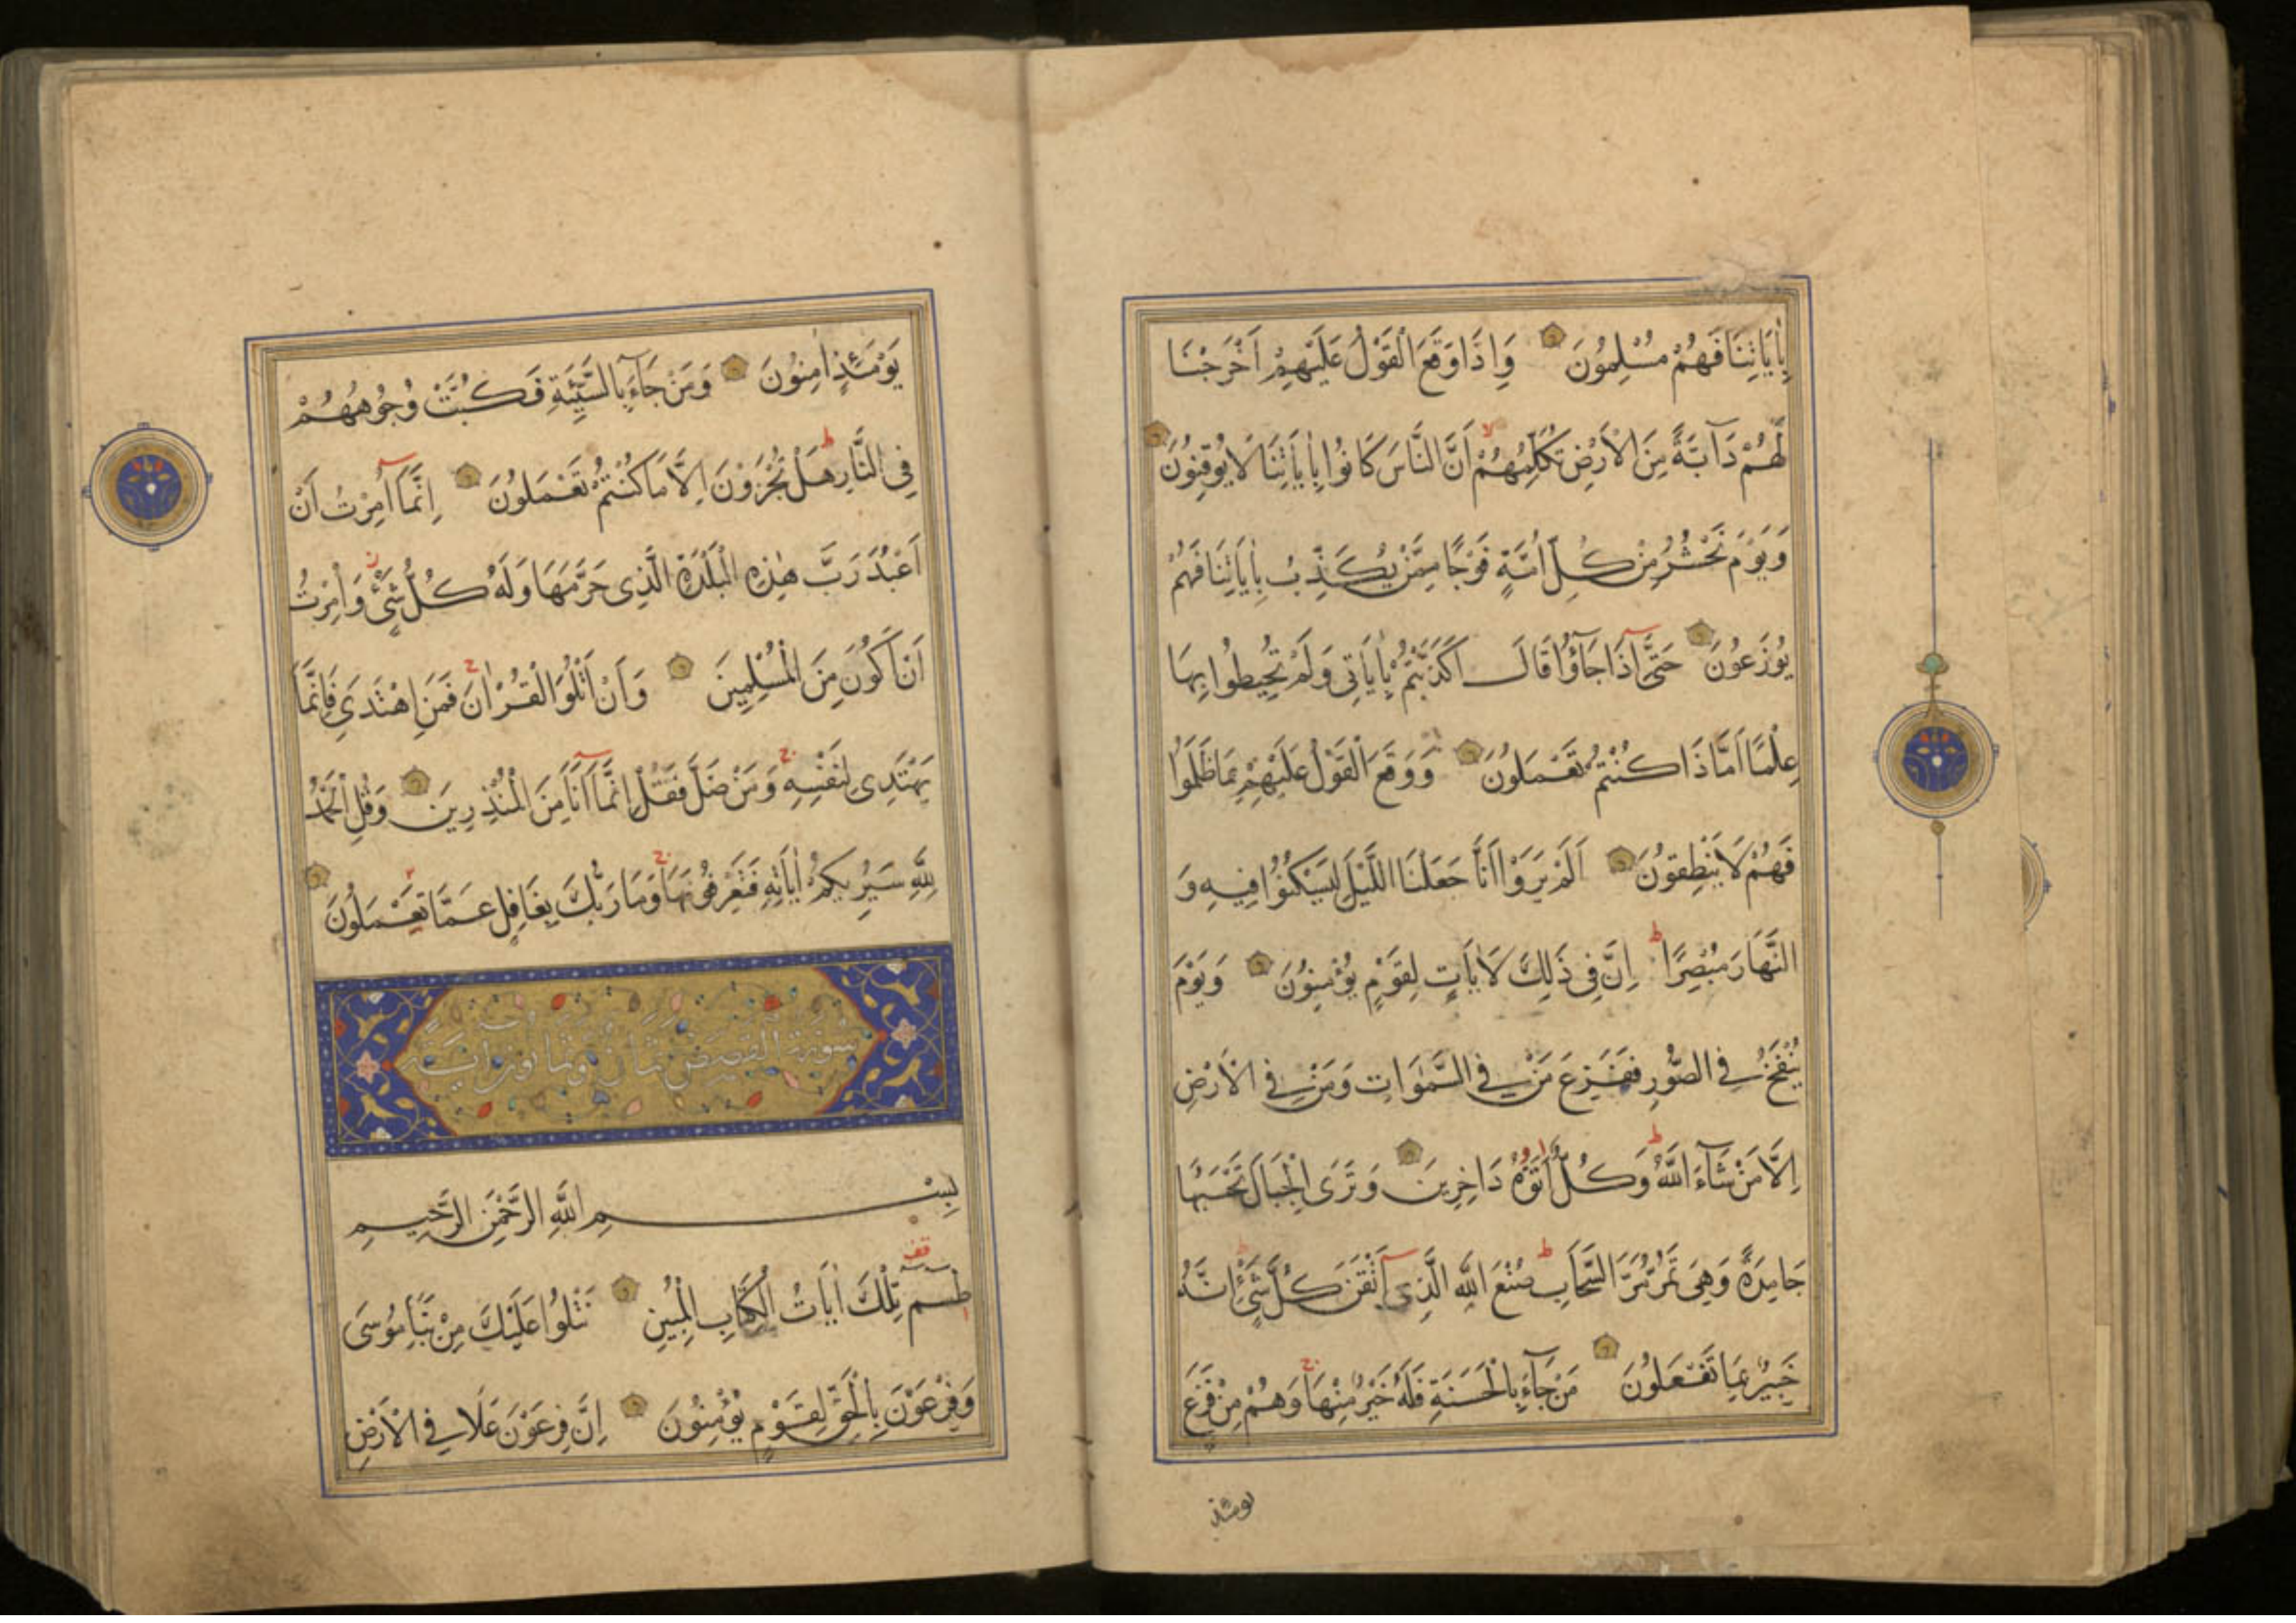 بِاٰيَاتِنَا فَهُمْ مُسْلِمُونَ وَاِذَا وَقَعَ الْقَوْلُ عَلَيْهِمْ اَخْرَجْنَا
لَهُمْ دَآبَّةً مِنَ الْاَرْضِ تُكَلِّمُهُمْ اَنَّ النَّاسَ كَانُوا بِاٰيَاتِنَا لَا يُوقِنُونَ
وَيَوْمَ نَحْشُرُ مِنْ كُلِّ اُمَّةٍ فَوْجًا مِمَّنْ يُكَذِّبُ بِاٰيَاتِنَا فَهُمْ
يُوزَعُونَ حَتَّىٓ اِذَا جَآؤُا قَالَ اَكَذَّبْتُمْ بِاٰيَاتِى وَلَمْ تُحِيطُوا بِهَا
عِلْمًا اَمَّا ذَا كُنْتُمْ تَعْمَلُونَ وَوَقَعَ الْقَوْلُ عَلَيْهِمْ بِمَا ظَلَمُوا
فَهُمْ لَا يَنْطِقُونَ اَلَمْ يَرَوْا اَنَّا جَعَلْنَا اللَّيْلَ لِيَسْكُنُوا فِيهِ وَ
النَّهَارَ مُبْصِرًا اِنَّ فِى ذٰلِكَ لَاٰيَاتٍ لِقَوْمٍ يُؤْمِنُونَ وَيَوْمَ
يُنْفَخُ فِى الصُّورِ فَفَزِعَ مَنْ فِى السَّمٰوَاتِ وَمَنْ فِى الْاَرْضِ
اِلَّا مَنْ شَآءَ اللّٰهُ وَكُلٌّ اَتَوْهُ دَاخِرِينَ وَتَرَى الْجِبَالَ تَحْسَبُهَا
جَامِدَةً وَهِىَ تَمُرُّ مَرَّ السَّحَابِ صُنْعَ اللّٰهِ الَّذِىٓ اَتْقَنَ كُلَّ شَىْءٍ اِنَّهُ
خَبِيرٌ بِمَا تَفْعَلُونَ مَنْ جَآءَ بِالْحَسَنَةِ فَلَهُ خَيْرٌ مِنْهَا وَهُمْ مِنْ فَزَعٍ
يومئذ
يَوْمَئِذٍ اٰمِنُونَ وَمَنْ جَآءَ بِالسَّيِّئَةِ فَكُبَّتْ وُجُوهُهُمْ
فِى النَّارِ هَلْ تُجْزَوْنَ اِلَّا مَا كُنْتُمْ تَعْمَلُونَ اِنَّمَآ اُمِرْتُ اَنْ
اَعْبُدَ رَبَّ هٰذِهِ الْبَلْدَةِ الَّذِى حَرَّمَهَا وَلَهُ كُلُّ شَىْءٍ وَاُمِرْتُ
اَنْ اَكُونَ مِنَ الْمُسْلِمِينَ وَاَنْ اَتْلُوَا الْقُرْاٰنَ فَمَنِ اهْتَدَى فَاِنَّمَا
يَهْتَدِى لِنَفْسِهِ وَمَنْ ضَلَّ فَقُلْ اِنَّمَآ اَنَا مِنَ الْمُنْذِرِينَ وَقُلِ الْحَمْدُ
لِلّٰهِ سَيُرِيكُمْ اٰيَاتِهِ فَتَعْرِفُونَهَا وَمَا رَبُّكَ بِغَافِلٍ عَمَّا تَعْمَلُونَ
سورة القصص ثمان وثمانون اية
بِسْمِ اللّٰهِ الرَّحْمٰنِ الرَّحِيمِ
طٰسٓمٓ تِلْكَ اٰيَاتُ الْكِتَابِ الْمُبِينِ نَتْلُوا عَلَيْكَ مِنْ نَبَاِ مُوسَى
وَفِرْعَوْنَ بِالْحَقِّ لِقَوْمٍ يُؤْمِنُونَ اِنَّ فِرْعَوْنَ عَلَا فِى الْاَرْضِ